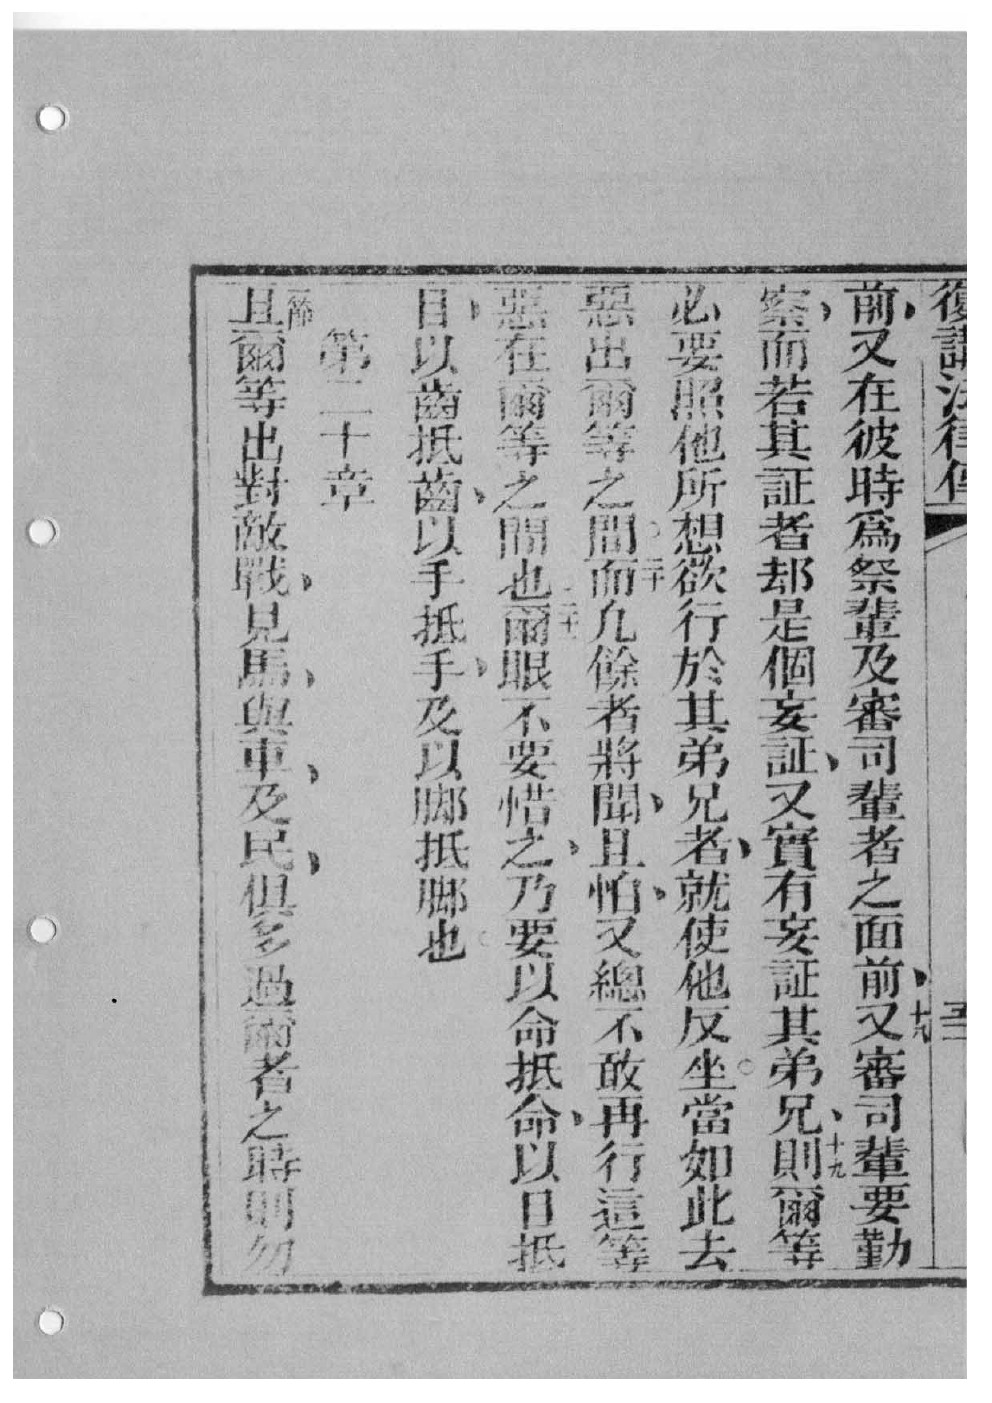 復講法律傳
前、又在彼時爲祭輩及審司輩者之面前、十八又審司輩要勤
察、而若其証者却是個妄証、又實有妄証其弟兄、十九則爾等
必要照他所想欲行於其弟兄者、就使他反坐。當如此去
惡出爾等之間。二十而凢餘者將聞、且怕、又總不敢再行這等
惡在爾等之間也。二十一爾眼不要惜之、乃要以命抵命、以目抵
目、以齒抵齒、以手抵手、及以脚抵脚也。
第二十章
一節且爾等出對敵戰、見馬、與車、及民、俱多過爾者之時、則勿